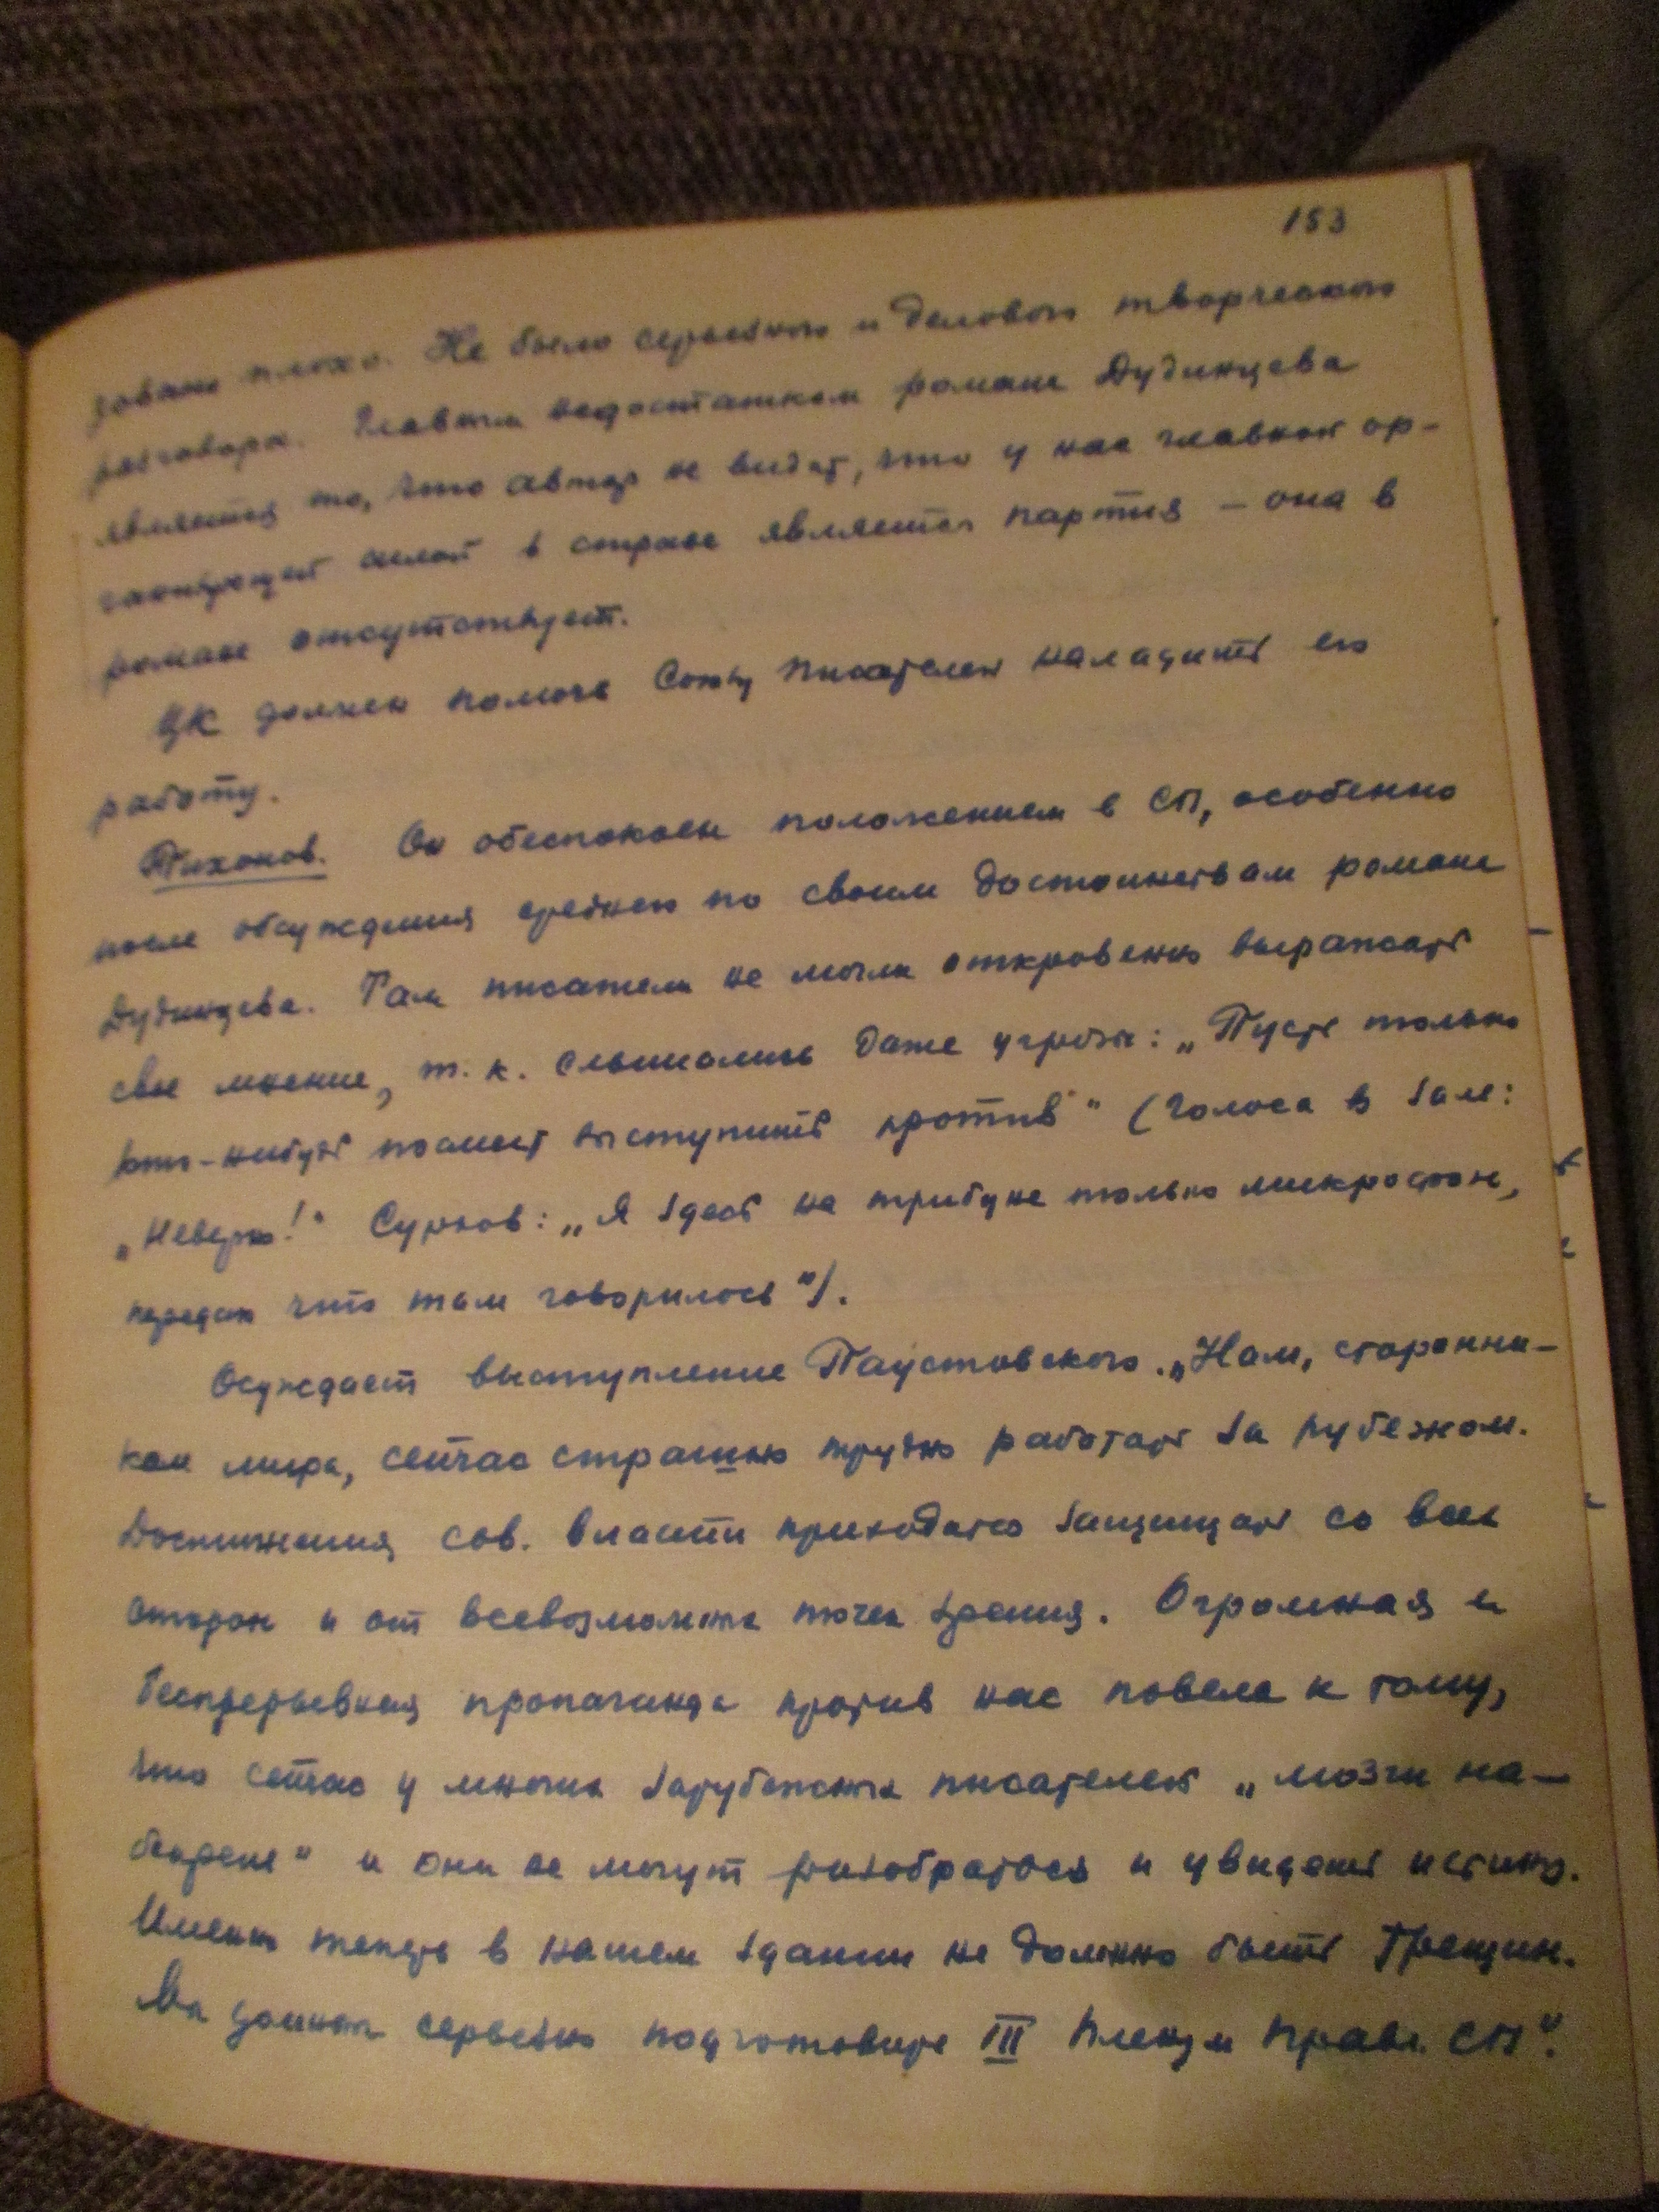 153
зовано плохо. Не было серьезного и делового творческого
разговора. Главным недостатком романа Дудинцева
является то, что автор не видит, что у нас главной ор-
ганизующей силой в стране является партия – она в
романе отсутствует.
ЦК должен помочь Союзу Писателей наладить его
работу.
Тихонов. Он обеспокоен положением в СП, особенно
после обсуждения среднего по своим достоинствам романа
Дудинцева. Там писатели не могли откровенно выражать
свое мнение, т. к. слышались даже угрозы: „Пусть только
кто-нибудь посмеет выступить против" (голоса в зале:
„Неверно!" Сурков: „Я здесь на трибуне только микрофон,
передаю что там говорилось").
Осуждает выступление Паустовского. „Нам, сторонни-
кам мира, сейчас страшно трудно работать за рубежом.
Достижения сов. власти приходится защищать со всех
сторон и от всевозможных точек зрения. Огромная и
беспрерывная пропаганда против нас повела к тому,
что сейчас у многих зарубежных писателей „мозги на-
бекрень" и они не могут разобраться и увидеть истину.
Именно теперь в нашем здании не должно быть трещин.
Мы должны серьезно подготовить III Пленум Правл. СП".